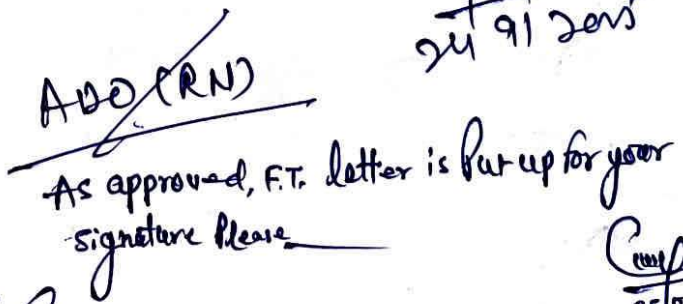 ADO (RN)
As approved, F.T. letter is Put up for your
signature Please